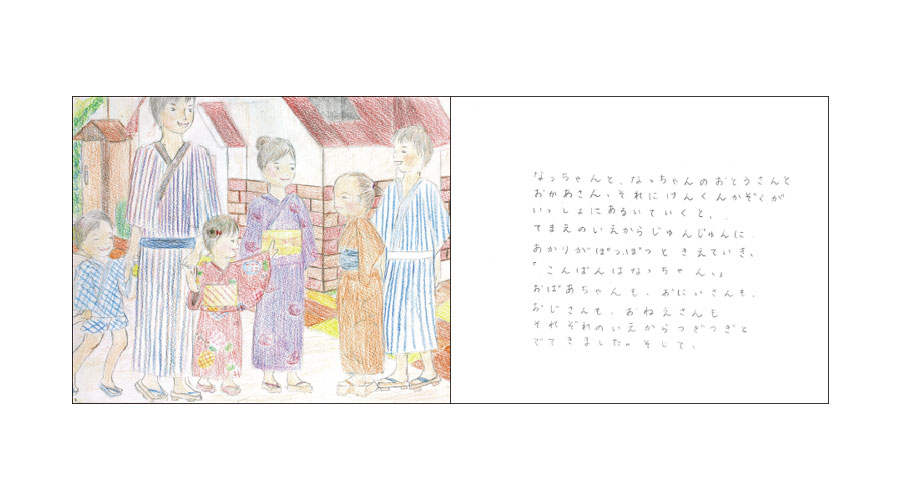 なっちゃんと、なっちゃんのおとうさんと
おかあさん、それにけんくんかぞくが
いっしょにあるいていくと、、
てまえのいえからじゅんじゅんに
あかりがぽつぽつときえていき、
「こんばんはなっちゃん。」
おばあちゃんも、おにいさんも、
おじさんも、おねえさんも
それぞれのいえからつぎつぎと
でてきました。そして、